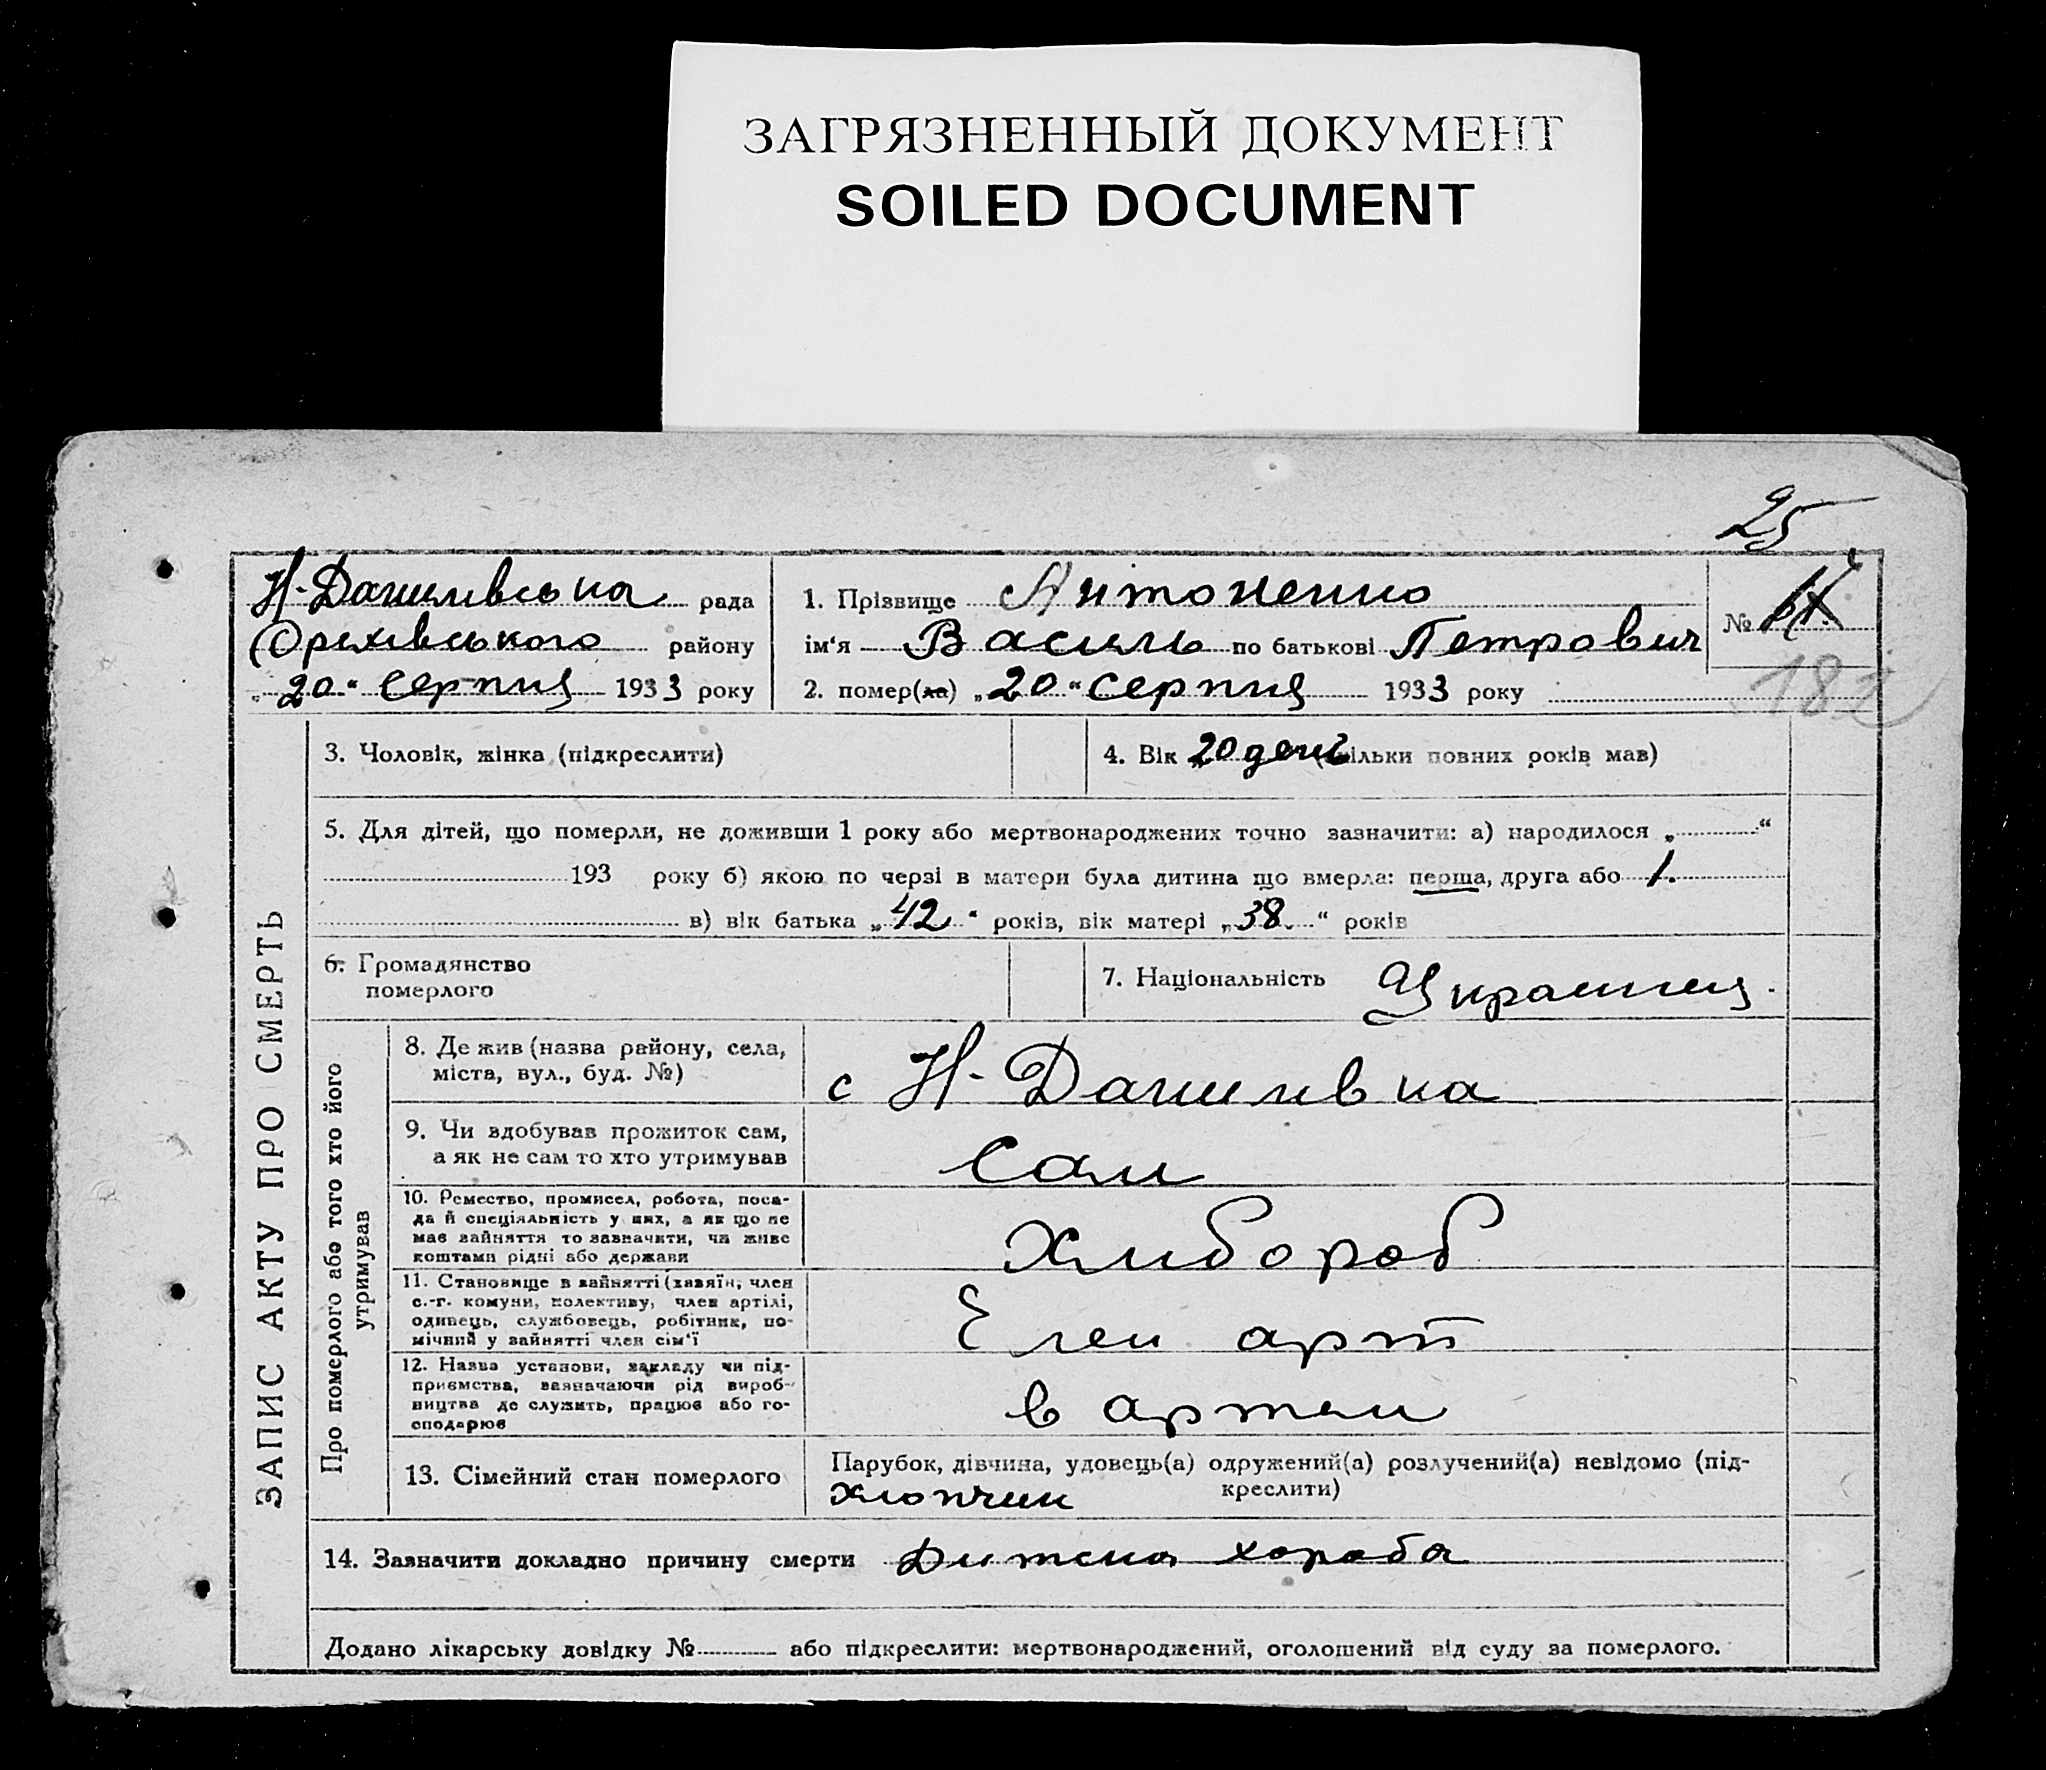 ЗАГРЯЗНЕННЫЙ ДОКУМЕНТ
SOILED DOCUMENT
25
Н-Даниливська рада
Орехівського району
„20“ серпня 1933 року
1. Прізвище Антоненко
ім‘я Василь по батькові Петрович
2. помер(ла) „20“ серпня 1933 року
№
182
ЗАПИС АКТУ ПРО СМЕРТЬ
3. Чоловік, жінка (підкреслити)
4. Вік „20 дени (скільки повних років мав)
5. Для дітей, що померли, не доживши 1 року або мертвонароджених точно зазначити: а) народилося „ “
193 року б) якою по черзі в матери була дитина що вмерла: перша, друга або 1.
в) вік батька „42“ років, вік матері „38“ років
6. Громадянство
померлого
7. Національність Украинец.
Про померлого або того хто його
утримував
8. Де жив (назва району, села,
міста, вул., буд. №)
с Н-Даниливка
9. Чи здобував прожиток сам,
а як не сам то хто утримував
Сам
10. Ремество, промисел, робота, поса-
да й спеціяльність у них, а як що не
має зайняття то зазначити, чи живе
коштами рідні або держави
Хлибороб
11. Становище в зайнятті (хазяїн, член
с.-г. комуни, колективу, член артілі,
одинець, службовець, робітник, по-
мічний у зайнятті член сім‘ї
Член арт
12. Назва установи, закладу чи під-
приємства, зазначаючи рід вироб-
ництва де служить, працює або го-
сподарює
в артели
13. Сімейний стан померлого
Парубок, дівчина, удовець(а) одружений(а) розлучений(а) невідомо (під-
креслити)
хлопчик
14. Зазначити докладно причину смерти Дитска хороба
Додано лікарську довідку № або підкреслити: мертвонароджений, оголошений від суду за померлого.